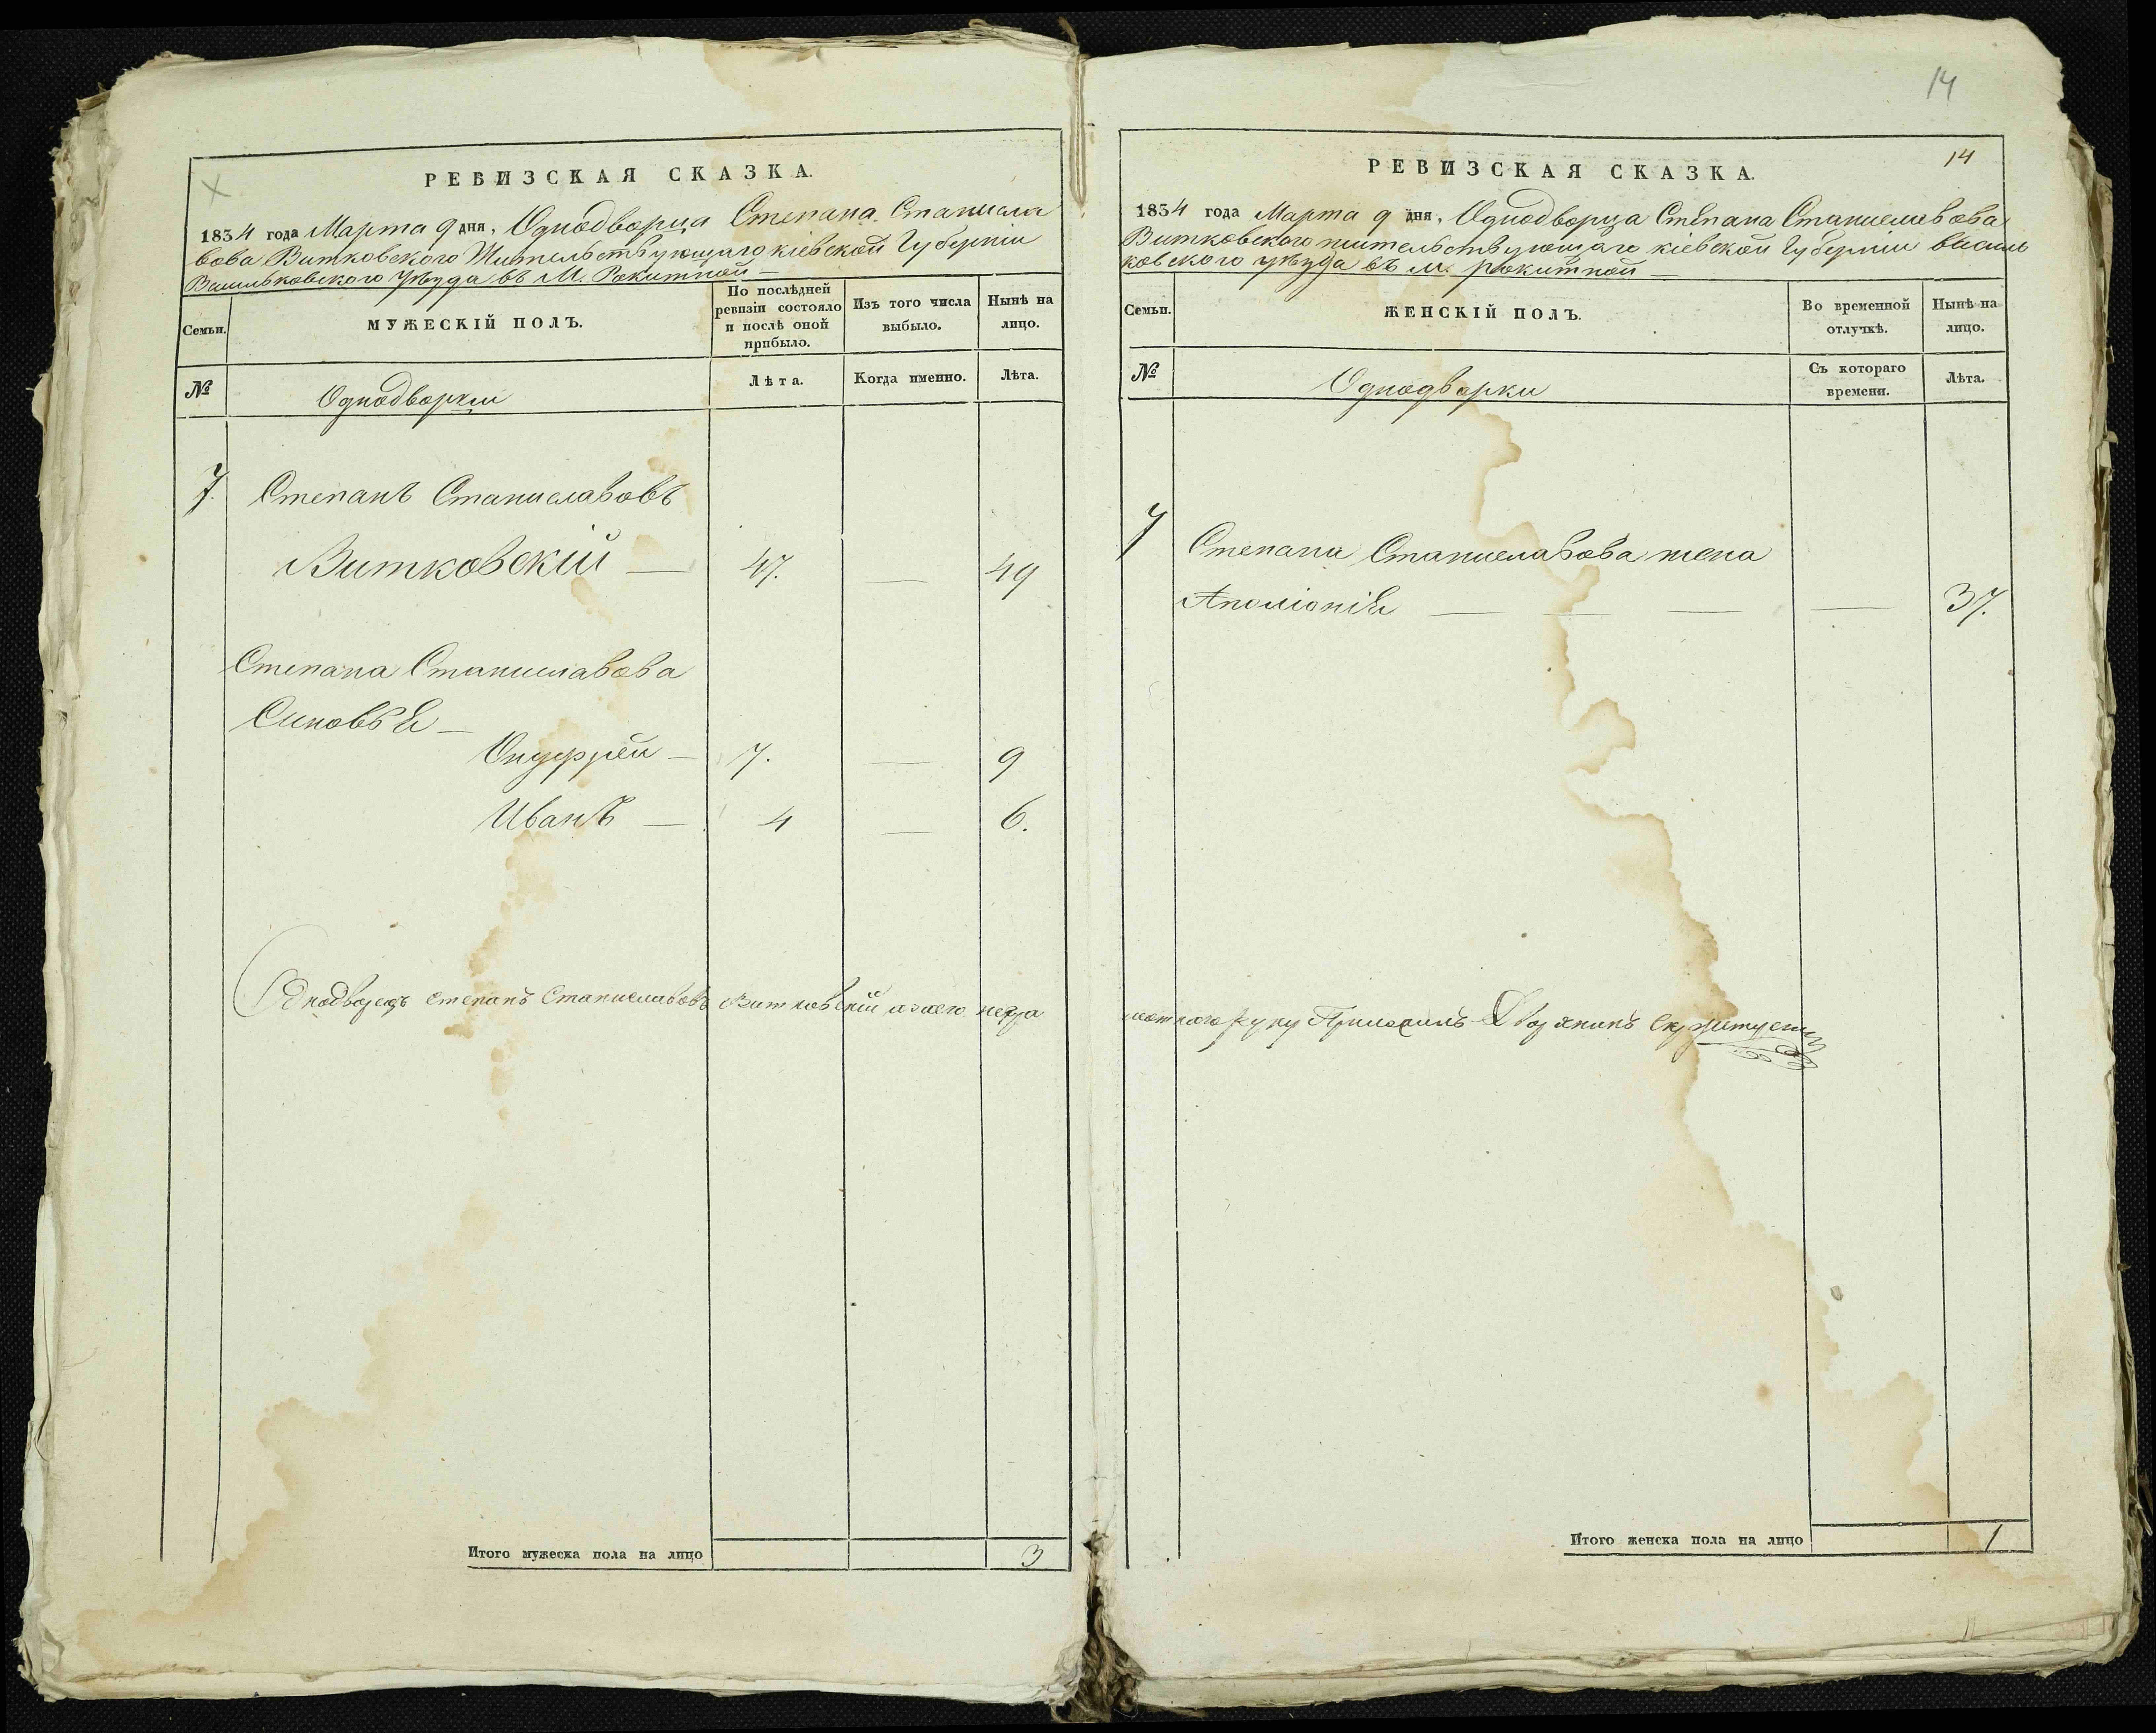 РЕВИЗСКАЯ СКАЗКА.
1834 года Марта 9 дня, Однодворца Степана Станисла
вова Витковского Жительствующаго кіевской Губерніи
Васильковского уѣзда въ М. Рокитной —
Семьи. МУЖЕСКІЙ ПОЛЪ. По послѣдней ревизіи состояло и послѣ оной прибыло. Изъ того числа выбыло. Нынѣ на лицо.
№ Однодворки Лѣта. Когда именно. Лѣта.
7. Степанъ Станиславовъ
Витковскій — 47. — 49
Степана Станиславова
Синовья —
Онуфрей — 7. — 9
Иванъ — 4 — 6.
Однодворецъ Степанъ Станиславовъ Витковскій азаего негра
Итого мужеска пола на лицо 3
14
14
РЕВИЗСКАЯ СКАЗКА.
1834 года Марта 9 дня, Однодворца Степана Станиславова
Витковского жительствующаго кіевской Губерніи василь
ковского уѣзда въ м. рокитной —
Семьи. ЖЕНСКІЙ ПОЛЪ. Во временной отлучкѣ. Нынѣ на лицо.
№ Однодворки Съ котораго времени. Лѣта.
7 Степана Станиславова жена
Аполіонія — — — — 37.
мотного руку Приложилъ Дворянинъ
Итого женска пола на лицо 1